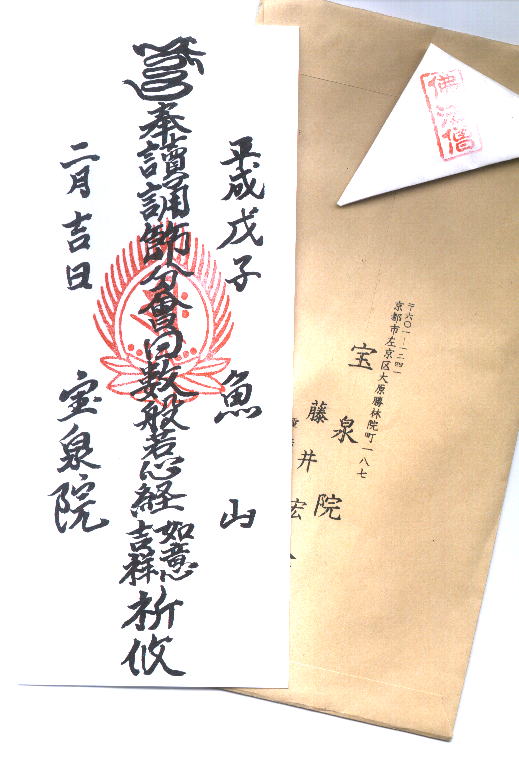 平成戊子 魚山
奉讀誦節分會回数般若心経 如意吉祥 祈攸
二月吉日 宝泉院
〒六〇一-一二四一
京都市左京区大原勝林院町一八七
宝泉院
藤井宏